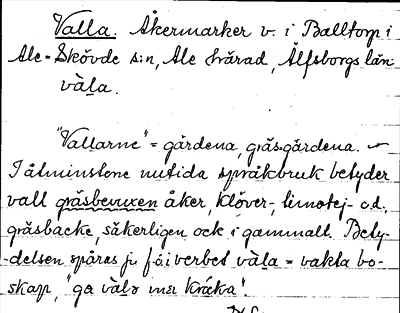 Valla. Åkermarker v. i Balltorp i
Ale-Skövde s:n, Ale härad, Älfsborgs län
våla.
"Vallarne" = gärdena, gräsgärdena. –
I åtminstone nutida språkbruk betyder
vall gräsbevuxen åker, klöver-, timotej- o.d.,
gräsbacke, säkerligen ock i gammalt. Bety-
-delsen spåras ju i verbet våla = vakta bo-
skap, "ga våla